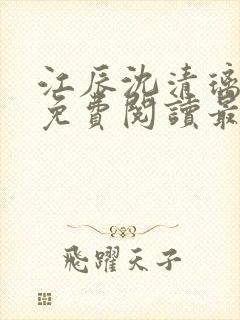 江辰沈清璃
免費閱讀最
飛躍天子